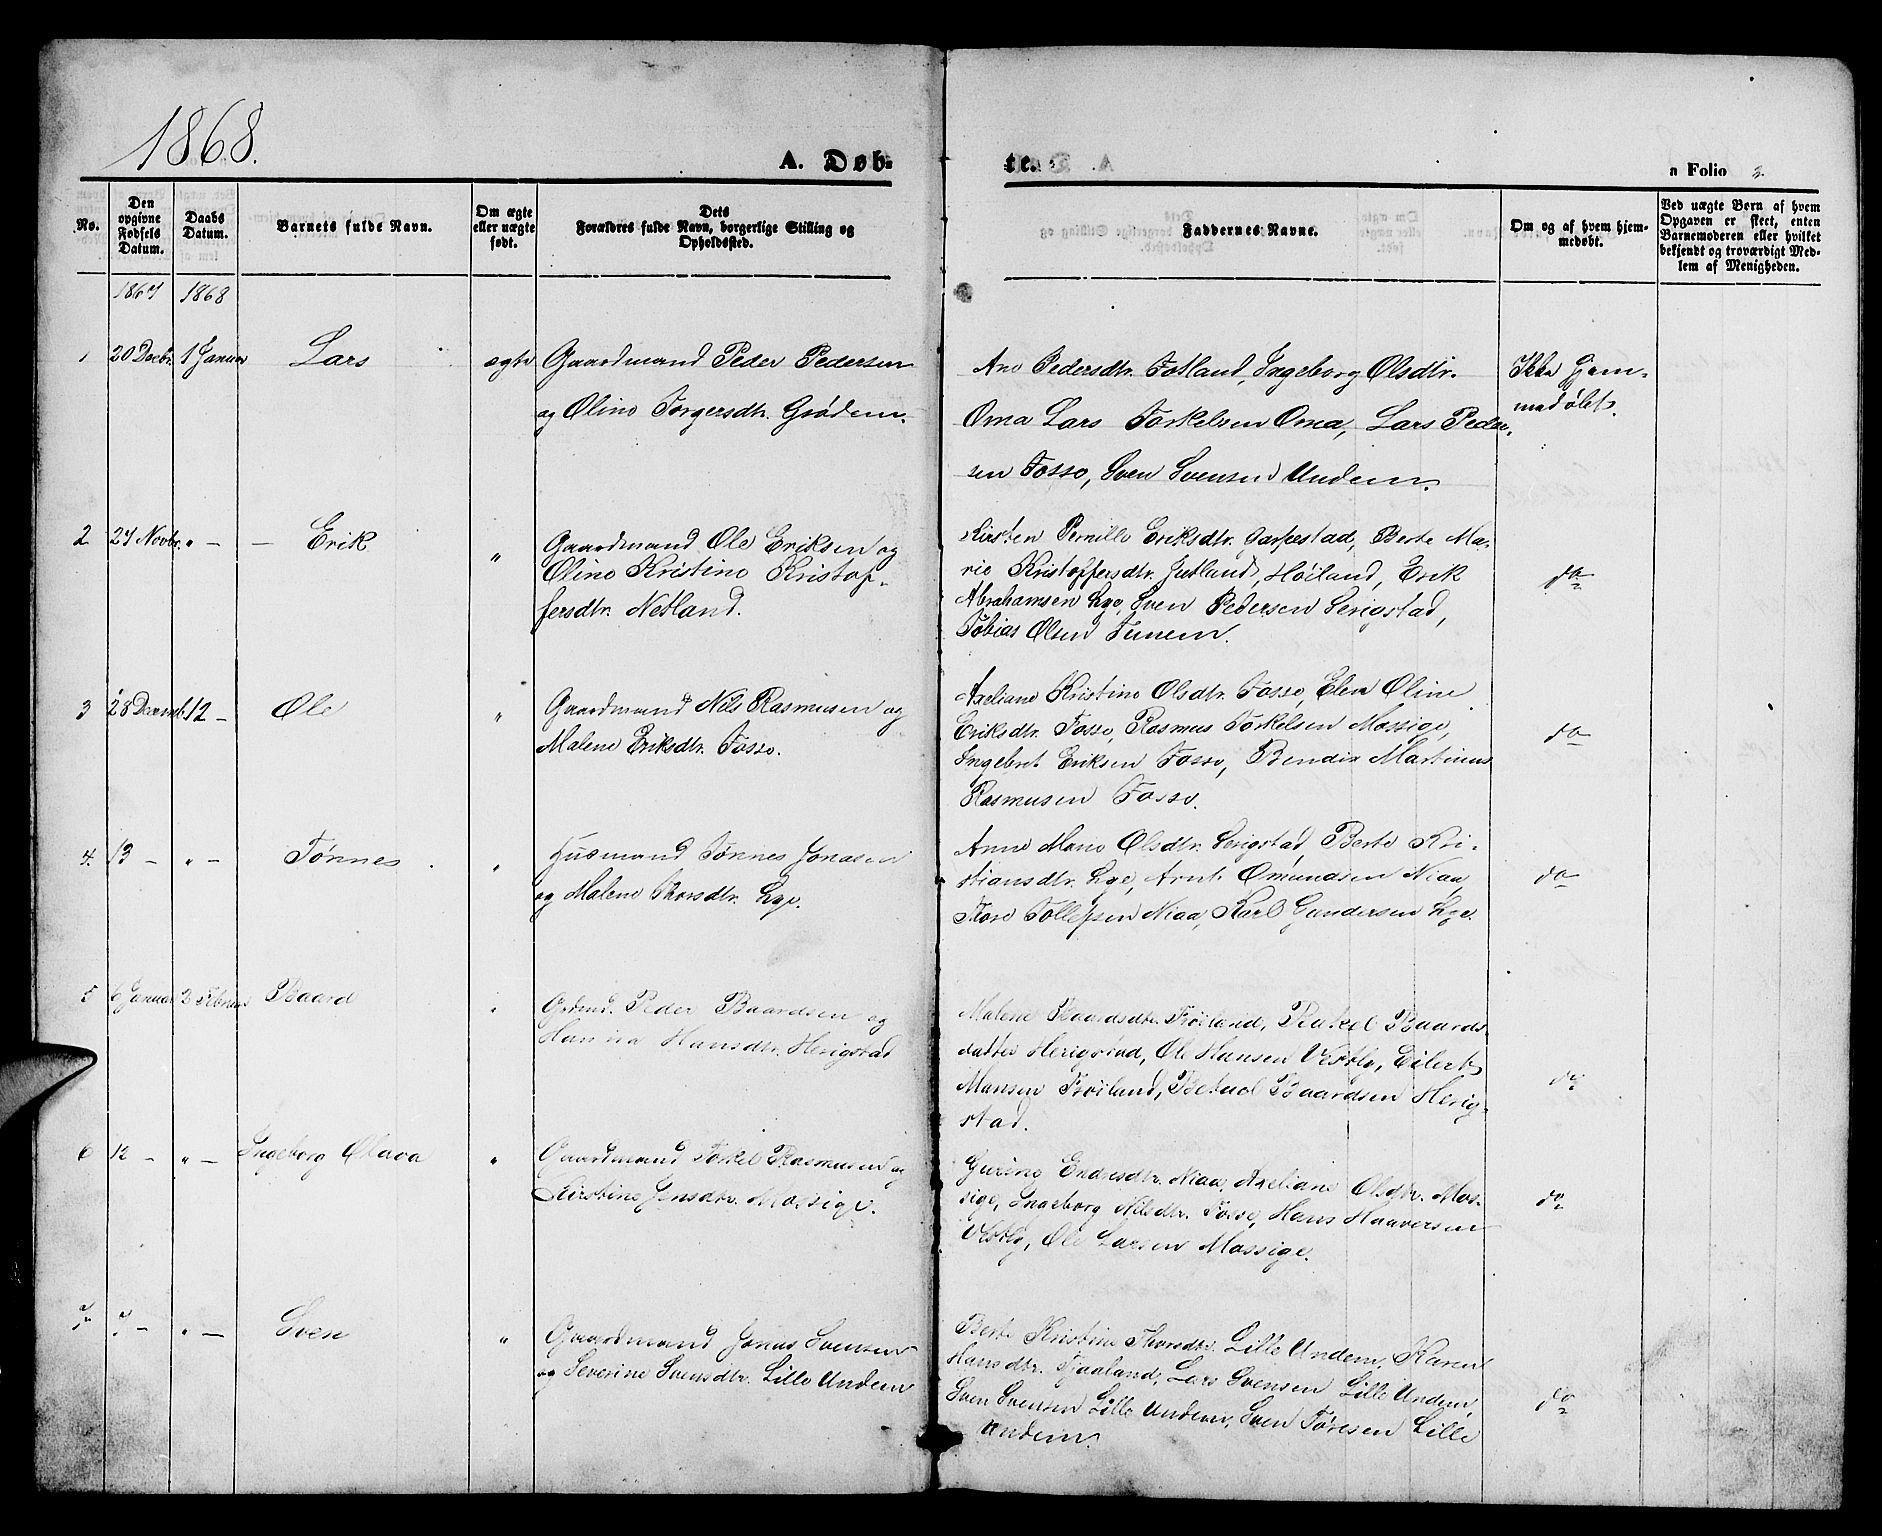 1868.
A. Døb-
te.
n Folio 2.
No.
Den opgivne Fødsels Datum.
Daabs Datum.
Barnets fulde Navn.
Om ægte eller uægte født.
Dets Forældres fulde Navn, borgerlige Stilling og Opholdssted.
Faddernes Navne.
Om og af hvem hjem-
medøbt.
Ved uægte Børn af hvem
Opgaven er skeet, enten
Barnemoderen eller hvilket
bekjendt og troværdigt Med-
lem af Menigheden.
1867 1868
1 20 Decbr. 1 Januar Lars ægte Gaardmand Peder Pedersen
og Oline Torgersdtr. Grødem.
Ane Pedersdtr. Fotland, Ingeborg Olsdtr.
Oma Lars Torkelsen Oma, Lars Peder-
sen Fosse, Sven Svensen Undem.
Ikke hjem-
medøbt.
2 27 Novbr. " — — Erik " Gaardmand Ole Eriksen og
Oline Kristine Kristof-
fersdtr. Netland.
Kirsten Pernille Eriksdtr. Garpestad, Berte Ma-
rie Kristoffersdtr. Jutland, Høiland, Erik
Abrahamsen Lye, Sven Pedersen Serigstad,
Tobias Olsen Tunem.
do
3 28 Decemb. 12 — Ole " Gaardmand Nils Rasmusen og
Malene Eriksdtr. Fosse.
Axeliane Kristine Olsdtr. Fosse, Elen Oline
Eriksdtr. Fosse, Rasmus Torkelsen Mossige,
Ingebret Eriksen Fosse, Bendix Martinus
Rasmusen Fosse.
do
4. 13 — " — Tønnes " Husmand Tønnes Jonasen
og Malene Thorsdtr. Lye.
Anne Marie Olsdtr. Serigstad, Berte Kri-
stiansdtr. Lye, Arnt Omundsen Niaa,
Tore Tollefsen Niaa, Karl Gundersen Lye.
do
5 6 Januar 2 Februar Baard " Grdmd. Peder Baardsen og
Hanna Hansdtr. Herigstad
Malene Baardsdtr. Frøiland, Rakel Baards-
datter Herigstad, Ole Hansen Vestly, Eilert
Mansen Frøiland, Betuel Baardsen Herig-
stad.
do
6 12 — " — Ingeborg Olava " Gaardmand Torkel Rasmusen og
Kirstine Jensdtr. Mossige.
Gurine Endresdtr. Niaa, Axeliane Olsdtr. Mos-
sige, Ingeborg Nilsdtr. Fosse, Hans Haaversen
Vestly, Ole Larsen Mossige.
do
7 7 — " — Sven " Gaardmand Jonas Svensen
og Severine Svensdtr. Lille Undem
Berte Kristine Thorsdtr. Lille Undem, Karen
Hansdtr. Tjaaland, Lars Svensen Lille Undem,
Sven Svensen Lille Undem, Sven Toresen Lille
Undem.
do